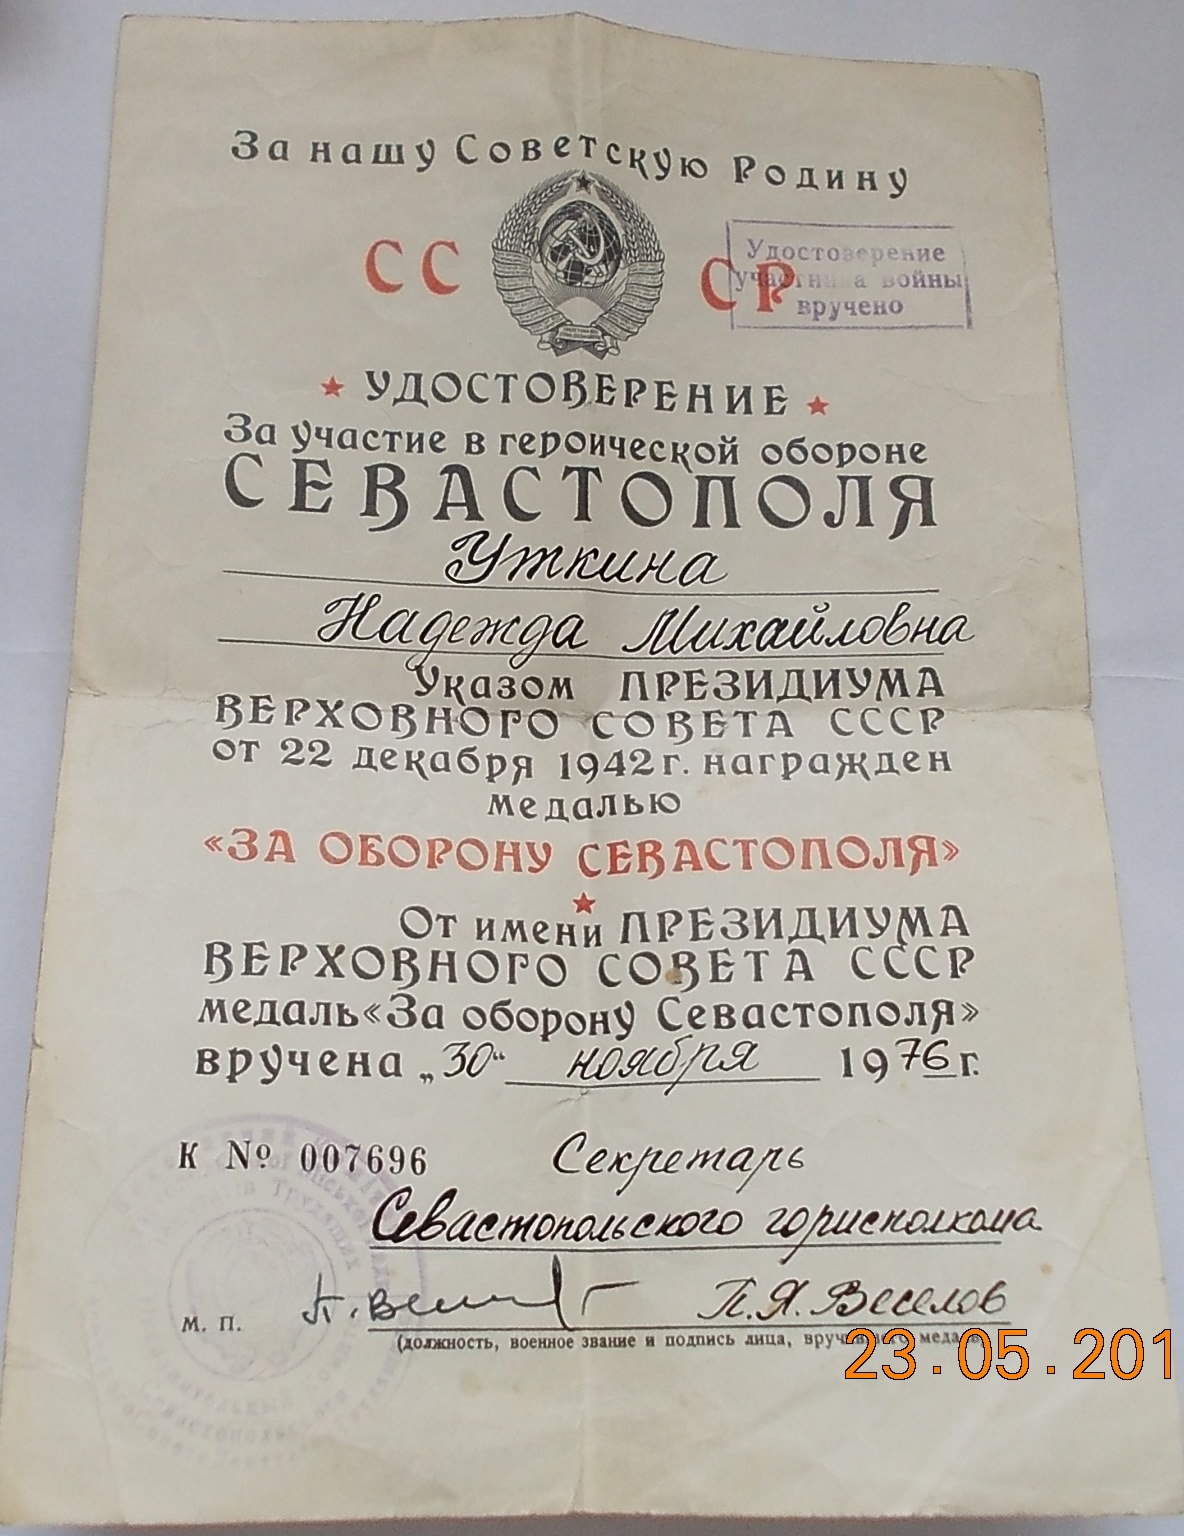 За нашу Советскую Родину
СССР
Удостоверение
участника войны
вручено
УДОСТОВЕРЕНИЕ
За участие в героической обороне
СЕВАСТОПОЛЯ
Уткина
Надежда Михайловна
Указом ПРЕЗИДИУМА
ВЕРХОВНОГО СОВЕТА СССР
от 22 декабря 1942 г. награжден
медалью
«ЗА ОБОРОНУ СЕВАСТОПОЛЯ»
От имени ПРЕЗИДИУМА
ВЕРХОВНОГО СОВЕТА СССР
медаль «За оборону Севастополя»
вручена „30“ ноября 1976 г.
К № 007696
Секретарь
Севастопольского горисполкома
П. Я. Веселов
М. П.
(должность, военное звание и подпись лица, вручившего медаль)
23.05.201